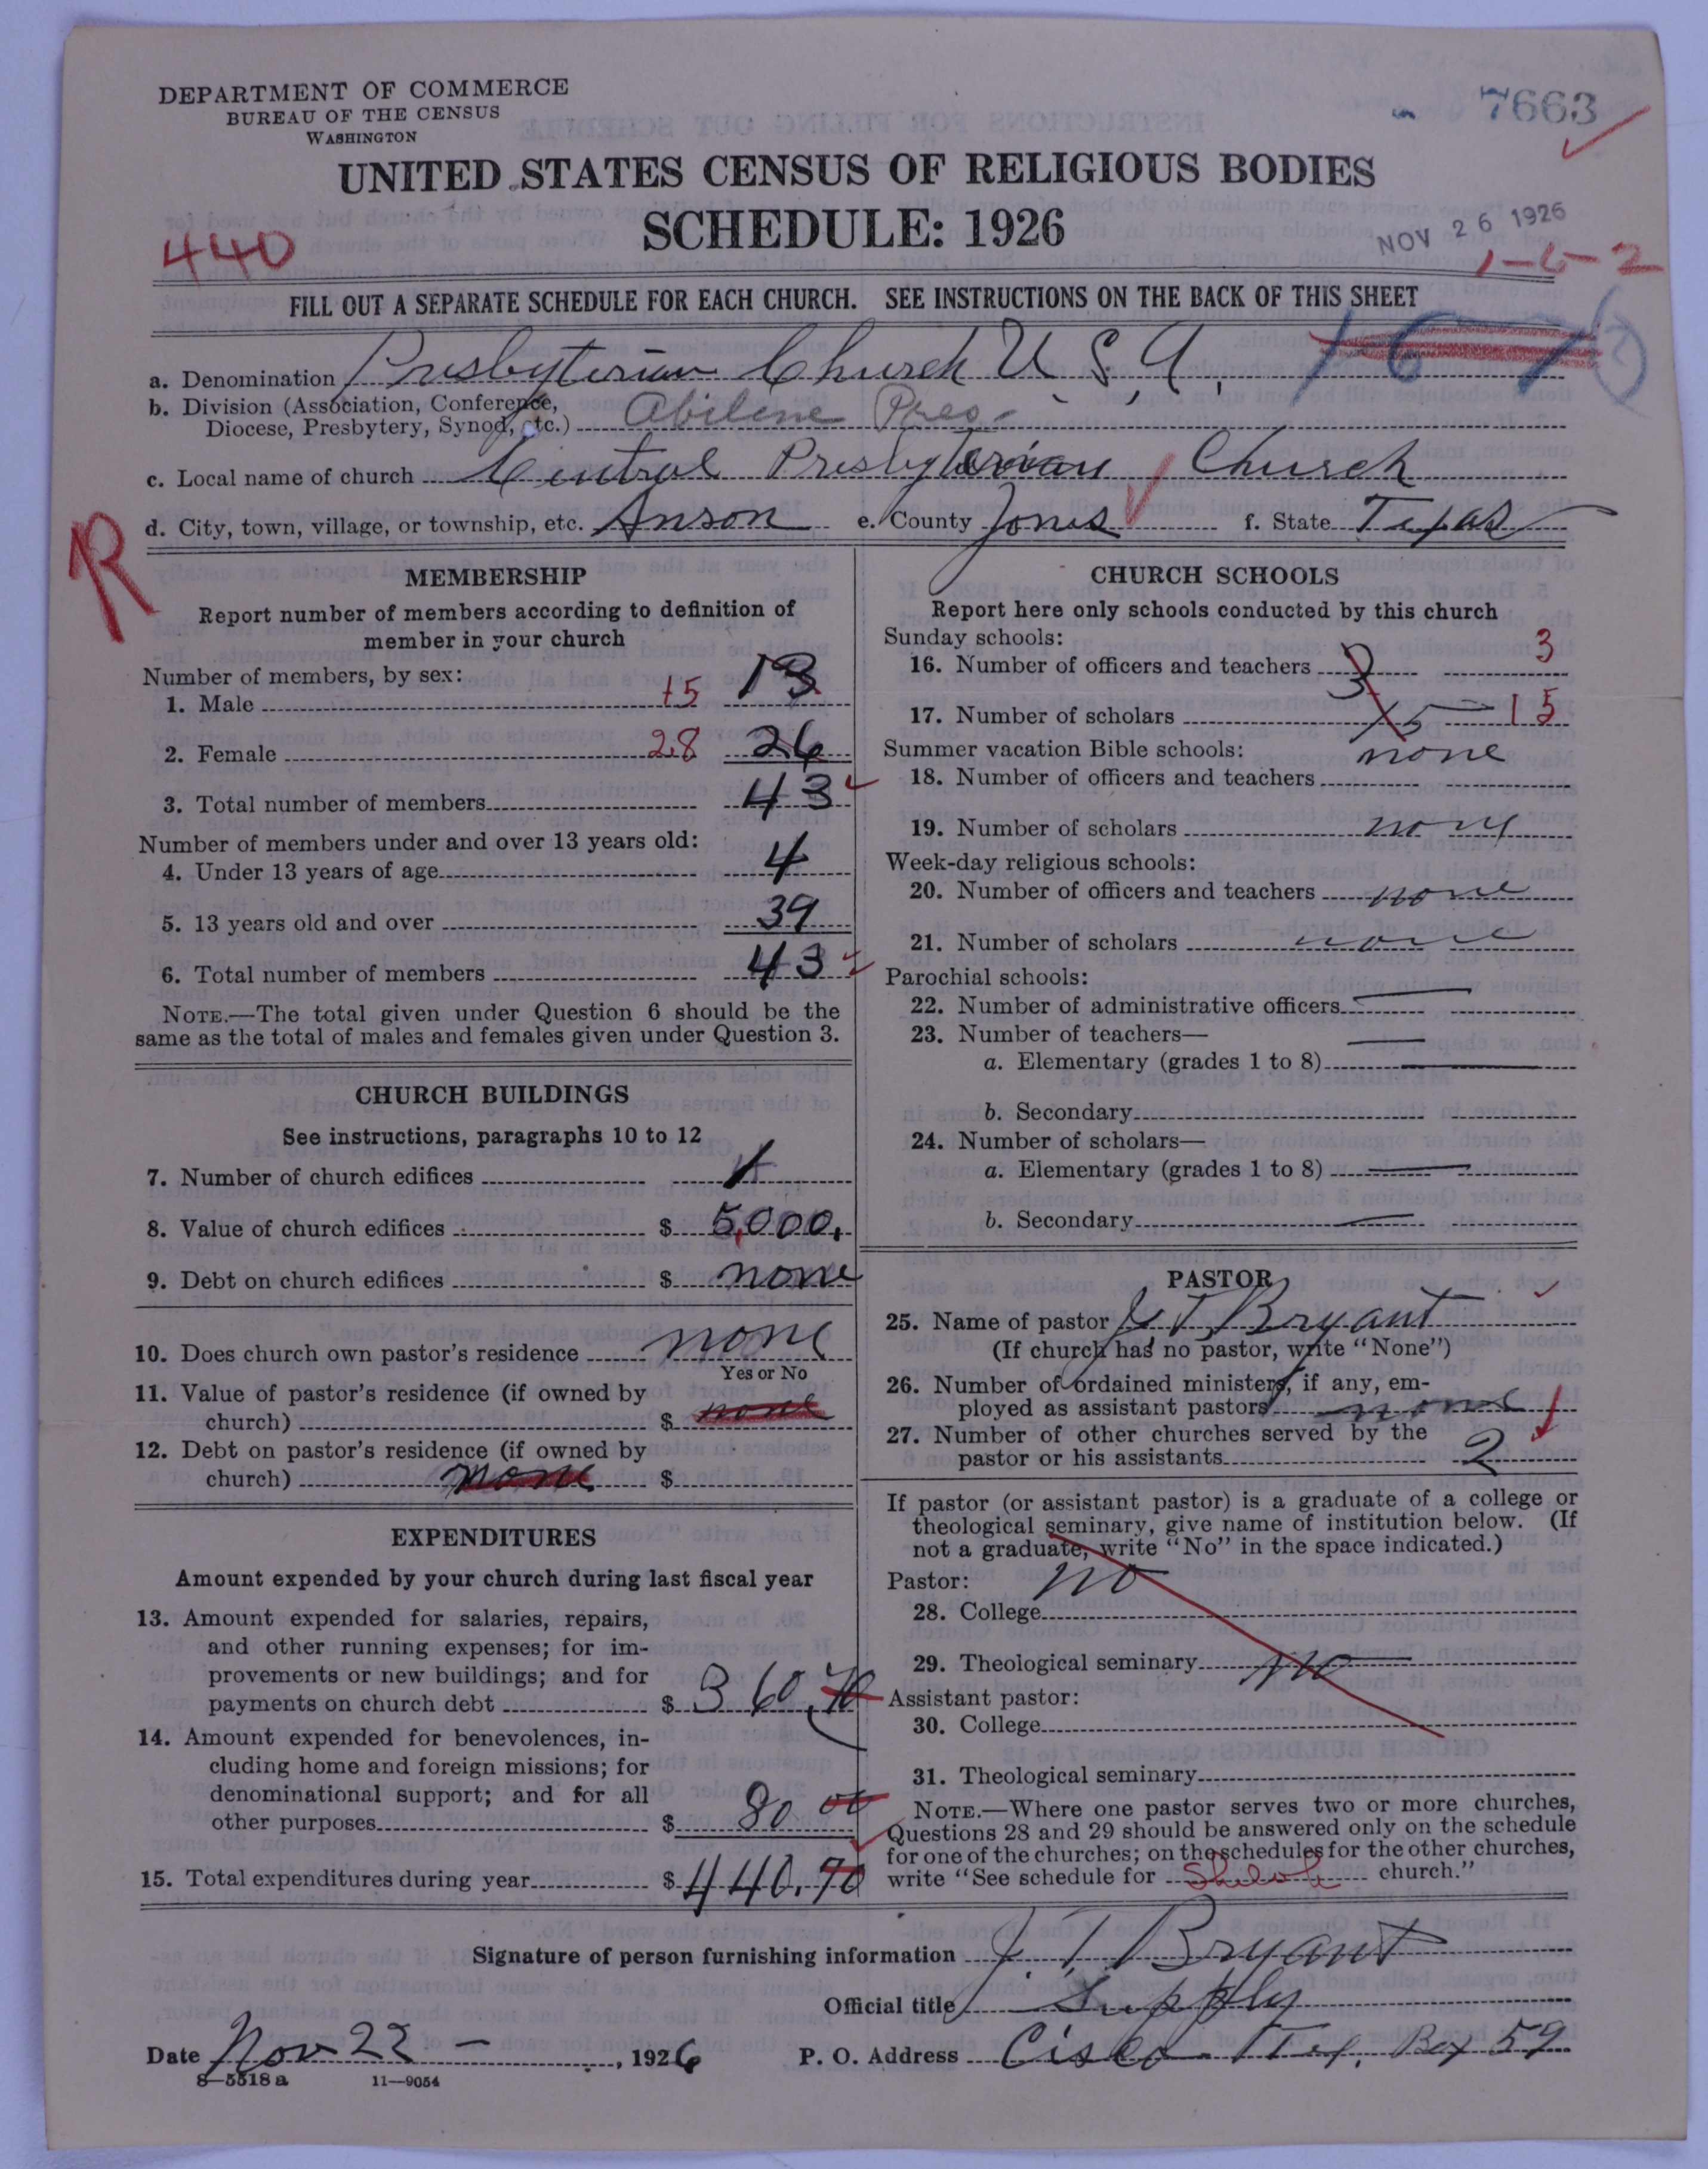 DEPARTMENT OF COMMERCE
BUREAU OF THE CENSUS
WASHINGTON
7663
UNITED STATES CENSUS OF RELIGIOUS BODIES
SCHEDULE: 1926
440
NOV 26 1926
1-6-2
FILL OUT A SEPARATE SCHEDULE FOR EACH CHURCH. SEE INSTRUCTIONS ON THE BACK OF THIS SHEET
a. Denomination Presbyterian Church U. S. A.
b. Division (Association, Conference,
Diocese, Presbytery, Synod, etc.) Abilene Pres.
c. Local name of church Central Presbyterian Church
d. City, town, village, or township, etc. Anson e. County Jones f. State Texas
R
MEMBERSHIP
Report number of members according to definition of
member in your church
Number of members, by sex:
1. Male 15 13
2. Female 28 26
3. Total number of members 43
Number of members under and over 13 years old:
4. Under 13 years of age 4
5. 13 years old and over 39
6. Total number of members 43
NOTE.—The total given under Question 6 should be the
same as the total of males and females given under Question 3.
CHURCH BUILDINGS
See instructions, paragraphs 10 to 12
7. Number of church edifices 1
8. Value of church edifices $ 5,000.
9. Debt on church edifices $ none
10. Does church own pastor's residence none
Yes or No
11. Value of pastor's residence (if owned by
church) $ none
12. Debt on pastor's residence (if owned by
church) none $
EXPENDITURES
Amount expended by your church during last fiscal year
13. Amount expended for salaries, repairs,
and other running expenses; for im-
provements or new buildings; and for
payments on church debt $ 360.70
14. Amount expended for benevolences, in-
cluding home and foreign missions; for
denominational support; and for all
other purposes $ 80 00
15. Total expenditures during year $ 440.70
CHURCH SCHOOLS
Report here only schools conducted by this church
Sunday schools:
16. Number of officers and teachers 3 3
17. Number of scholars 15 15
Summer vacation Bible schools:
18. Number of officers and teachers none
19. Number of scholars none
Week-day religious schools:
20. Number of officers and teachers none
21. Number of scholars none
Parochial schools:
22. Number of administrative officers
23. Number of teachers—
a. Elementary (grades 1 to 8)
b. Secondary
24. Number of scholars—
a. Elementary (grades 1 to 8)
b. Secondary
PASTOR
25. Name of pastor J. T. Bryant
(If church has no pastor, write "None")
26. Number of ordained ministers, if any, em-
ployed as assistant pastors none
27. Number of other churches served by the
pastor or his assistants 2
If pastor (or assistant pastor) is a graduate of a college or
theological seminary, give name of institution below. (If
not a graduate, write "No" in the space indicated.)
Pastor:
28. College no
29. Theological seminary no
Assistant pastor:
30. College
31. Theological seminary
NOTE.—Where one pastor serves two or more churches,
Questions 28 and 29 should be answered only on the schedule
for one of the churches; on the schedules for the other churches,
write "See schedule for Shiloh church."
Signature of person furnishing information J. T. Bryant
Official title Supply
Date Nov 22 —, 1926 P. O. Address Cisco Tex. Box 59
8—5518a 11—9054